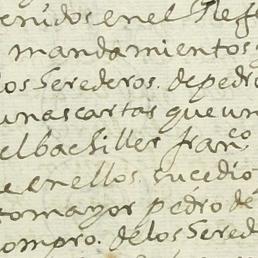 enidos en el Refe
mandamientos
los Herederos. de pedro
unas cartas que un
el bachiller fran^co
e en ellos. sucedio
tomayor pedro de
ompro. de los Hered